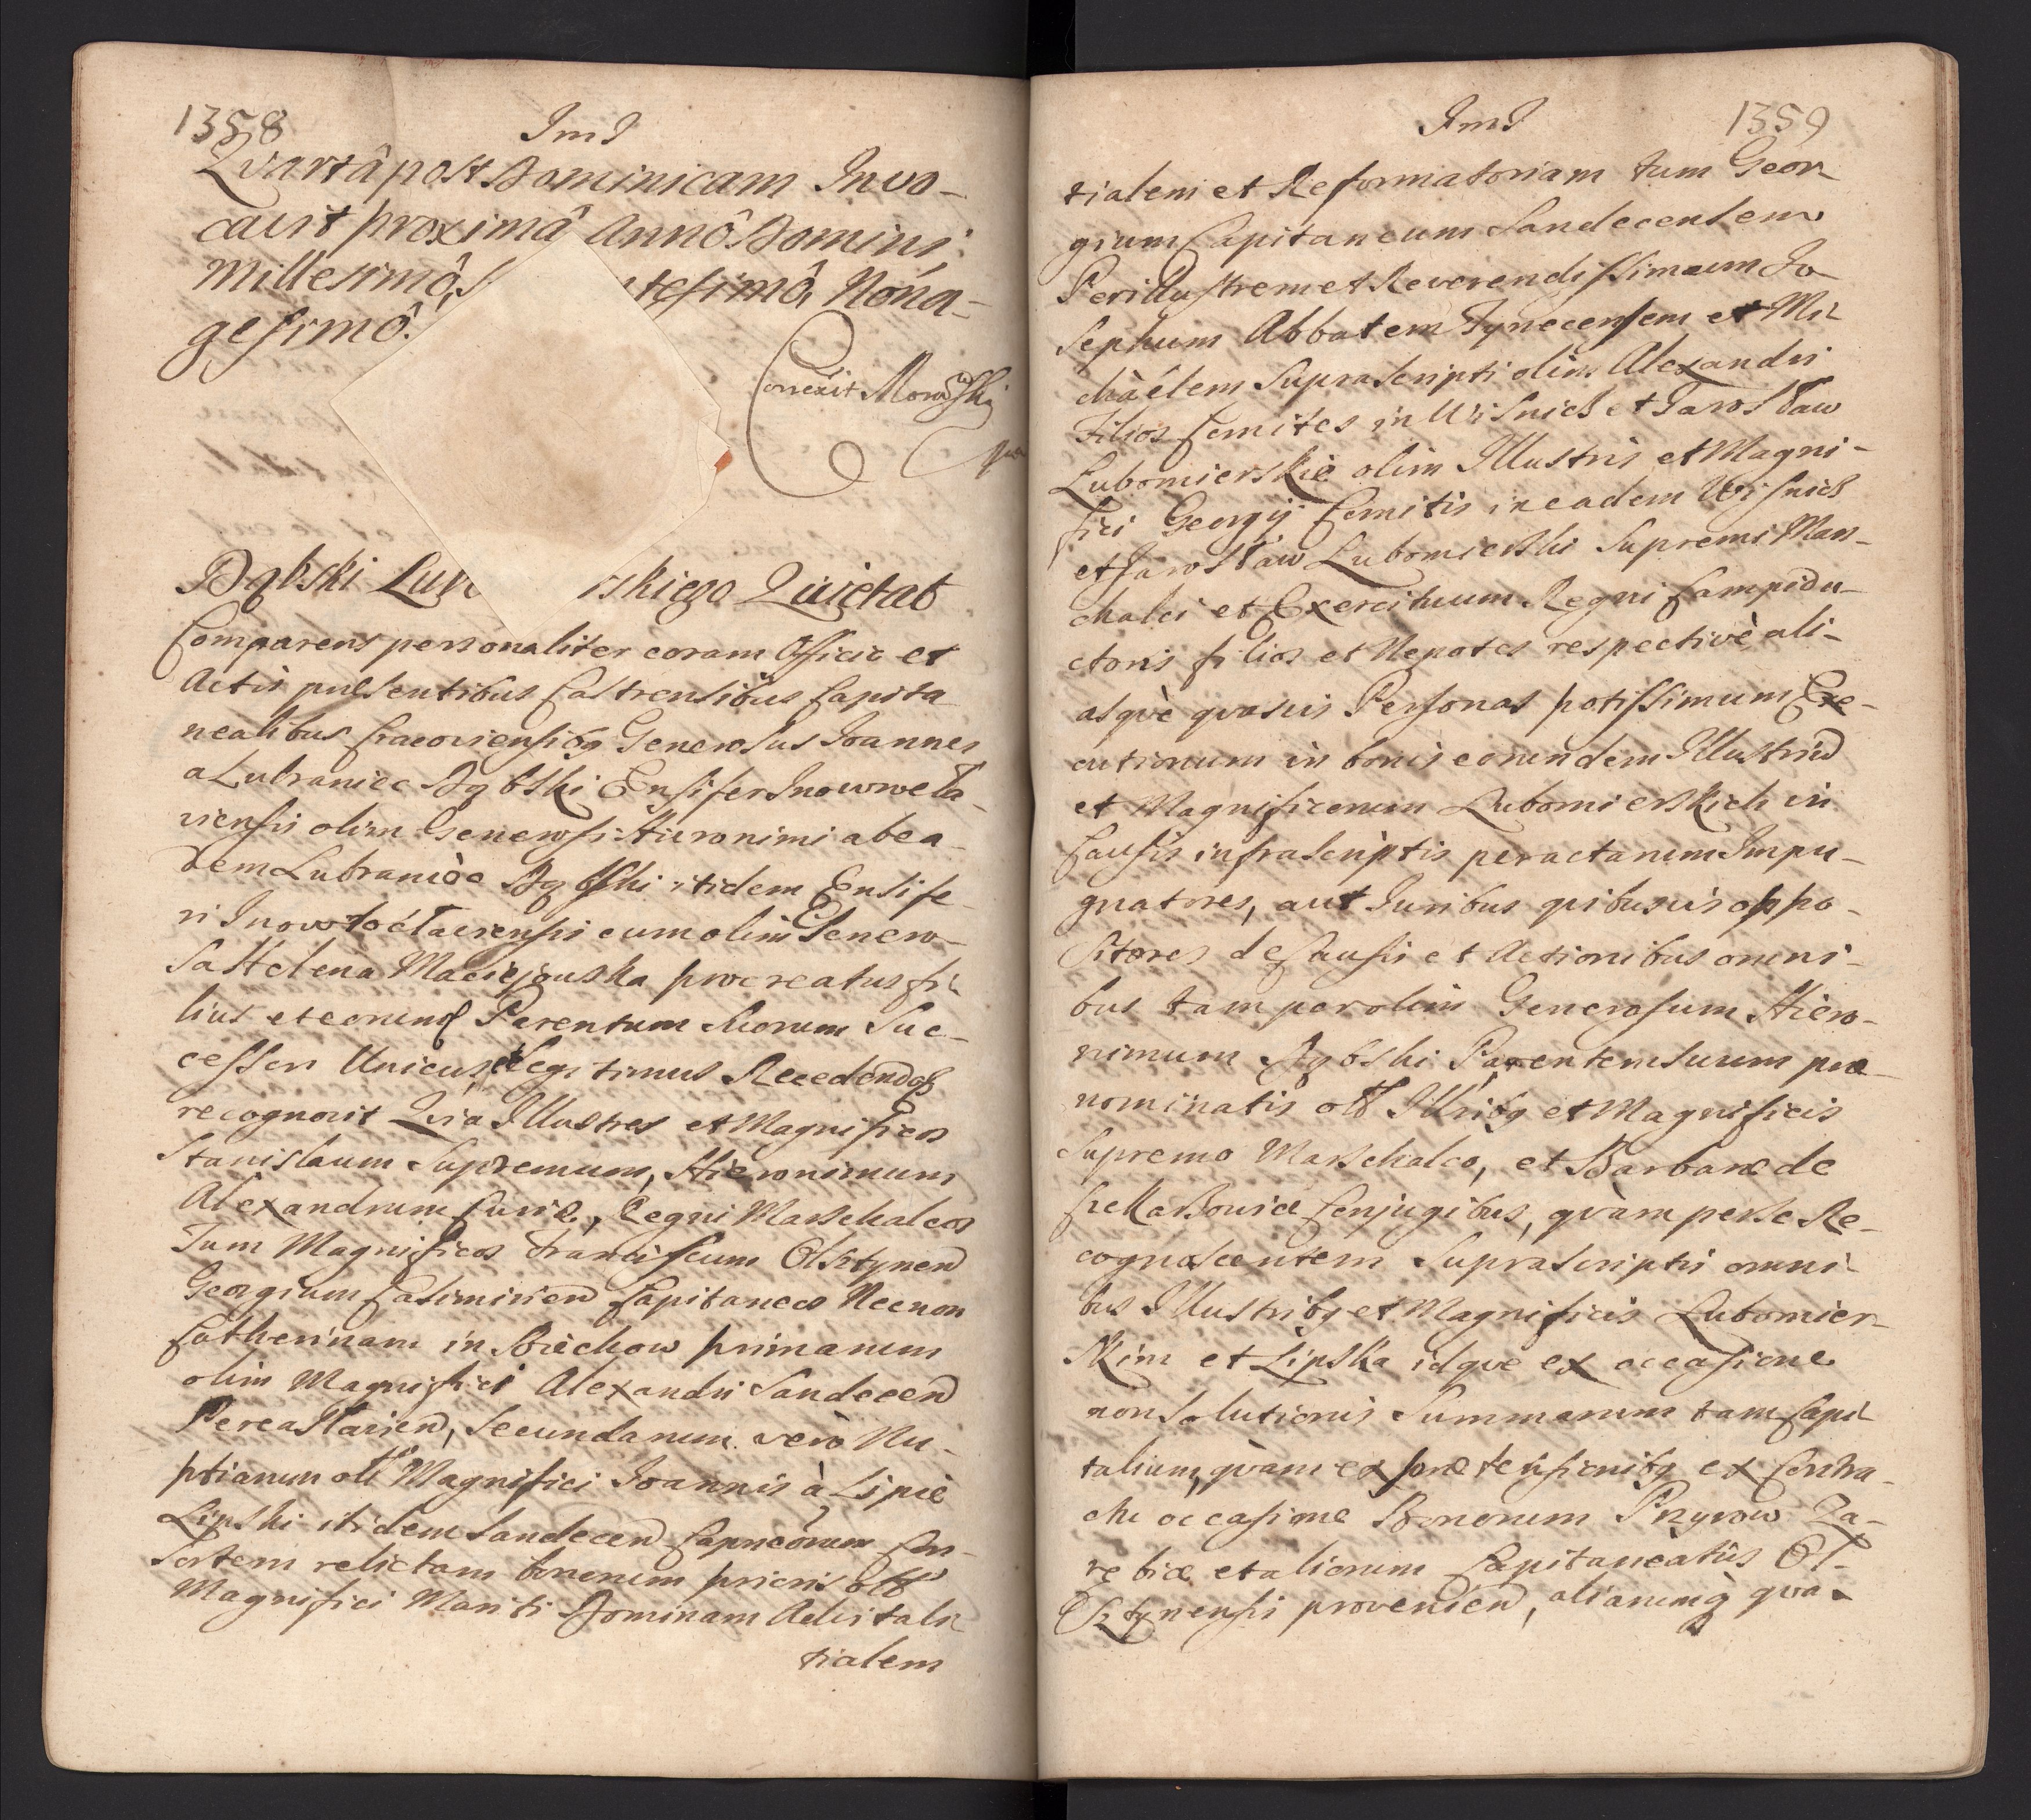 1358
ImJ
Qvartâ post Dominicam Invo-
cavit proximâ Annô Domini
Millesimô, S tesimô, Nona-
gesimô.
Correxit Morawski
Dąbski Lub skiego Quietat
Comparens personaliter coram Officio et
Actis præsentibus Castrensibus Capita
nealibus Cracoviensibq Generosus Joannes
a Lubraniec Dąbski Ensifer Inowrocła-
viensis olim Generosi Hieronimi ab ea-
dem Lubraniec Dąbski itidem Ensife-
ri Inowłocłaviensis cum olim Genero-
sa Helena Maciejowska procreatus fi-
lius et eorund Parentum suorum Suc-
cessor Unicus et Legitimus Recedend
recognovit Qvia Illustres et Magnificos
Stanislaum Supremum, Hieronimum
Alexandrum Curiæ, Regni Marschalcos
Tum Magnificos Franciscum Olsztynen
Georgium Casimirien Capitaneos Necnon
Catherinam in Borzechow primarum
olim Magnifici Alexandri Sandecen
Pereaslavien, Secundarum verò Nu-
ptiarum olt Magnifici Joannis à Lipie
Lipski itidem Sandecen Capneorum Con-
sortem relictam bonorum prioris olt
Magnifici Mariti Dominam Advitali-
tialem
ImJ
1359
tialem et Reformatoriam tum Geor-
gium Capitaneum Sandecensem
Perillustrem et Reverendissimum Jo-
sephum Abbatem Tynecensem et Mi-
chàélem Suprascripti olim Alexandri
Filios Comites in Wisnicz et Jarosław
Lubomierskie olim Illustris et Magni-
fici Georgij Comitis in eadem Wisnicz
et Jarosław Lubomierski Supremi Mar-
chalci et Exercituum Regni Campidu-
ctoris filios et Nepotes respectivè ali-
asqvè qvasvis Personas potissimum Exe-
cutionum in bonis eorundem Illustriu
et Magnificorum Lubomierskich in
Causis infrascriptis peractarum Impu-
gnatores, aut Juribus qvibusvis oppo-
sitores de Causis et Actionibus omni-
bus tam per olim Generosum Hiero-
nimum Dąbski Parentem suum præ-
nominatis olt Illribq et Magnificis
Supremo Marschalco, et Barbaræ de
Conjugibus, qvàm per se Re-
cognoscentem Suprascriptis omni-
bus Illustribq et Magnificis Lubomier-
skim et Lipska idqve ex occasione
non Solutionis Summarum tam Capi-
talium, qvàm ex prætensionibq ex Contra-
ctu occasione Bonorum Przyrow Za-
rebice et aliorum Capitaneatûs Ol-
Osztynensis provenien, aliarumq qva-